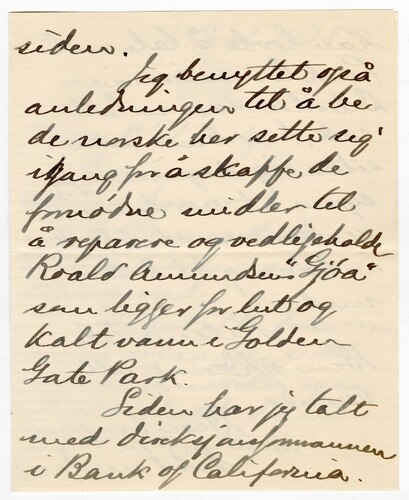 siden.
Jeg benyttet også
anledningen til å be
de norske her sette sig
igang for å skaffe de
fornødne midler til
å reparere og vedligeholde
Roald Amundsens "Gjöa"
som ligger for lut og
kalt vann i Golden
Gate Park.
Siden har jeg talt
med direksjonsformannen
i Bank of California.